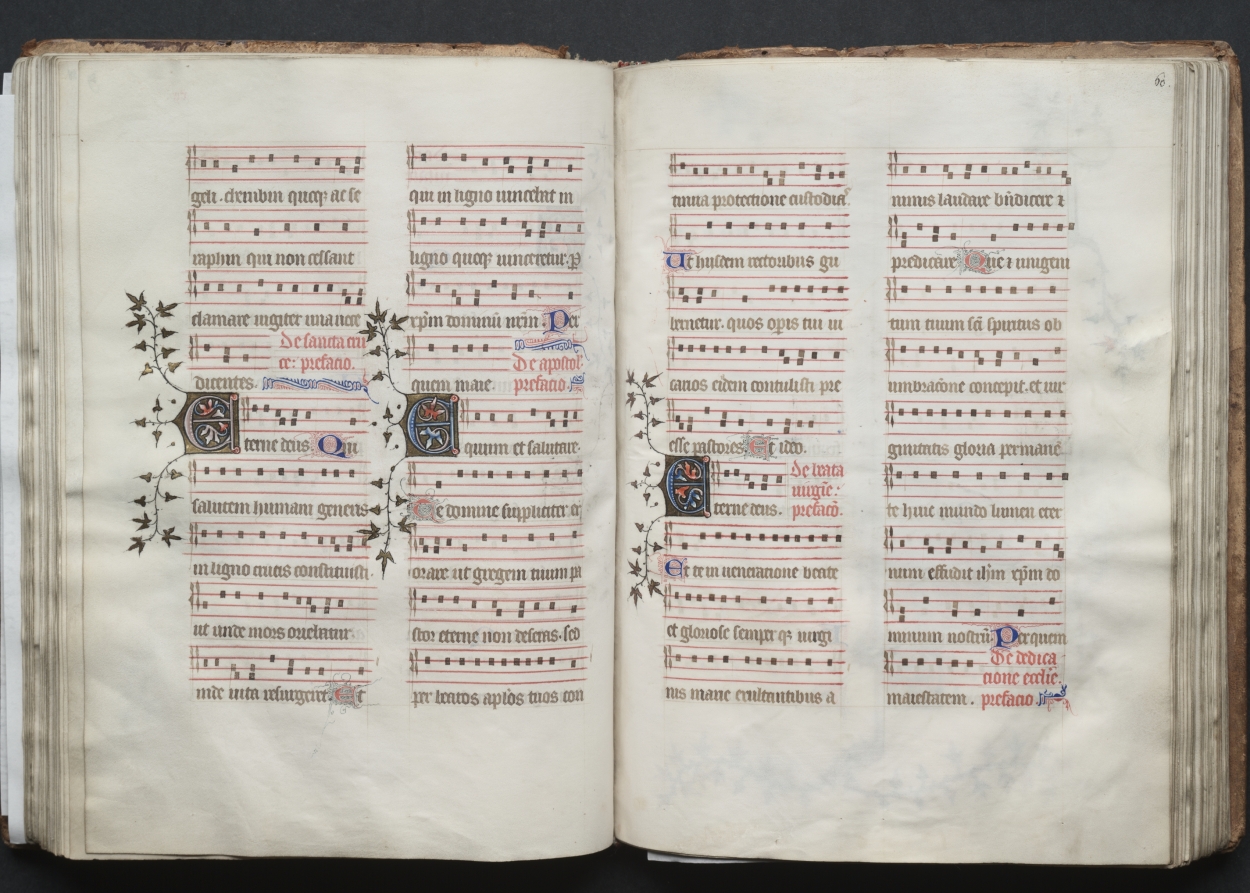 geli. cherubin queq; ac se
raphin qui non cessant
clamare iugiter una uoce
dicentes.
De sancta cru
ce: prefacio.
Eterne deus. Qui
salutem humani generis
in ligno crucis constituisti.
ut unde mors oriebatur.
inde uita resurgeret Et
qui in ligno uincebat in
ligno queq; uinceretur. p̲
xp̄m dominū nr̄m. Per
quem maie.
De apostol.
prefacio
Equum et salutare.
Te domine suppliciter ex
orare ut gregem tuum pa
stor eterne non deseras. sed
per beatos aplōs tuos con
60.
tinua protectione custodias
Ut hijsdem rectoribus gu
bernetur. quos opis tui ui
carios eidem contulisti pre
esse pastores. Et ideo.
Eterne deus.
De beata
uirgīe:
prefacō.
Et te in ueneratione beate
et gloriose semper q; uirgi
nis marie exultantibus a
nimis laudare bn̄dicere ⁊
predicare Que ⁊ unigeni
tum tuum sc̄i spiritus ob
umbracōne concepit. et uir
ginitatis gloria permanē
te huic mundo lumen eter
num effudit ih̄m xp̄m do
minum nostrū. Per quem
maiestatem.
De dedica
cione ecclie.
prefacio